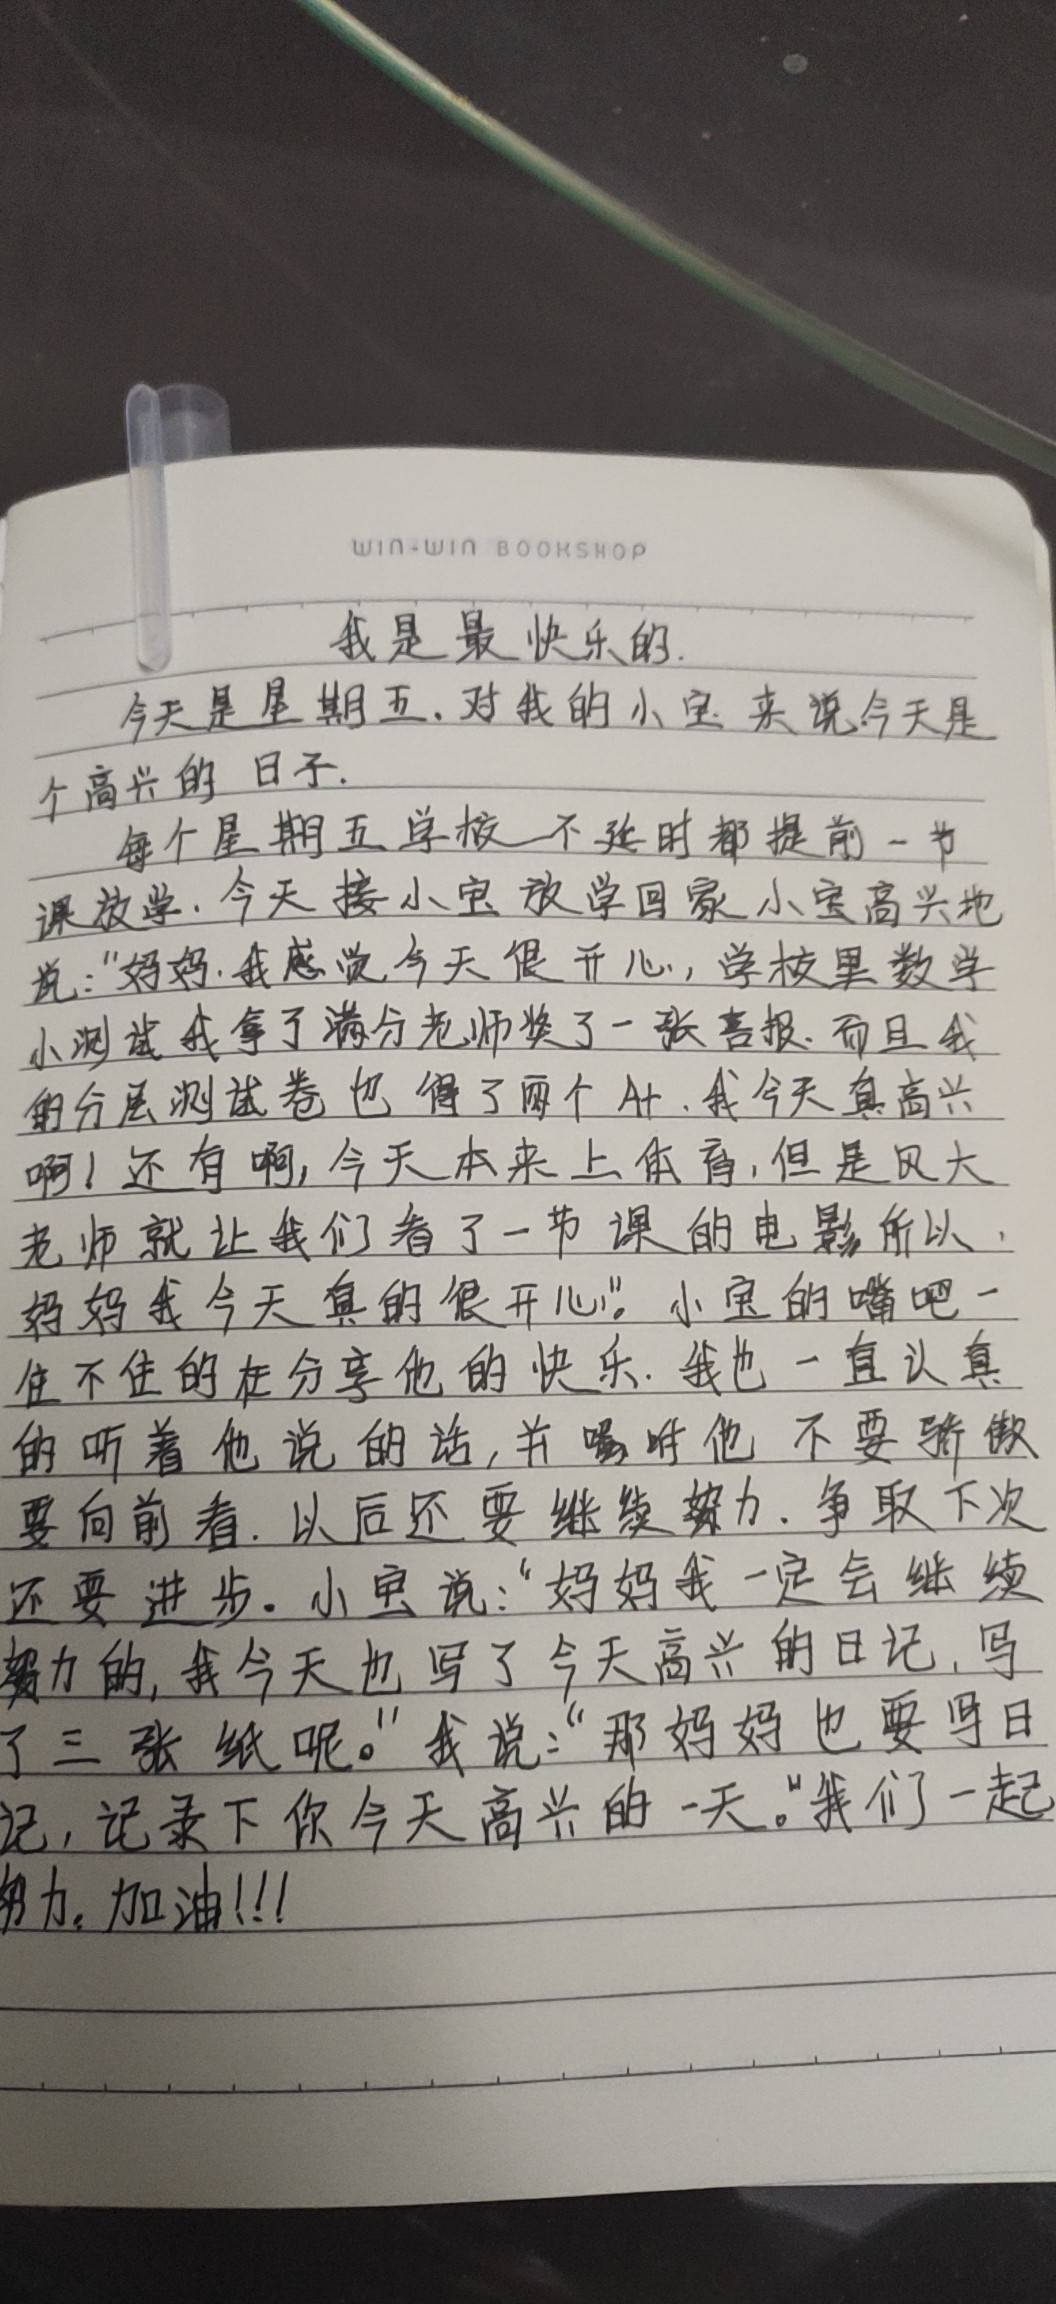 WIN-WIN BOOKSHOP
我是最快乐的.
今天是星期五.对我的小宝来说.今天是
个高兴的日子.
每个星期五学校不延时都提前一节
课放学.今天接小宝放学回家小宝高兴地
说:"妈妈.我感觉今天很开心,学校里数学
小测试我拿了满分老师奖了一张喜报.而且我
的分层测试卷也得了两个A+.我今天真高兴
啊!还有啊,今天本来上体育,但是风大
老师就让我们看了一节课的电影所以,
妈妈我今天真的很开心"。小宝的嘴吧一
住不住的在分享他的快乐.我也一直认真
的听着他说的话,并嘱咐他不要骄傲
要向前看.以后还要继续努力.争取下次
还要进步。小宝说:"妈妈我一定会继续
努力的,我今天也写了今天高兴的日记,写
了三张纸呢。"我说:"那妈妈也要写日
记,记录下你今天高兴的一天。"我们一起
努力。加油!!!